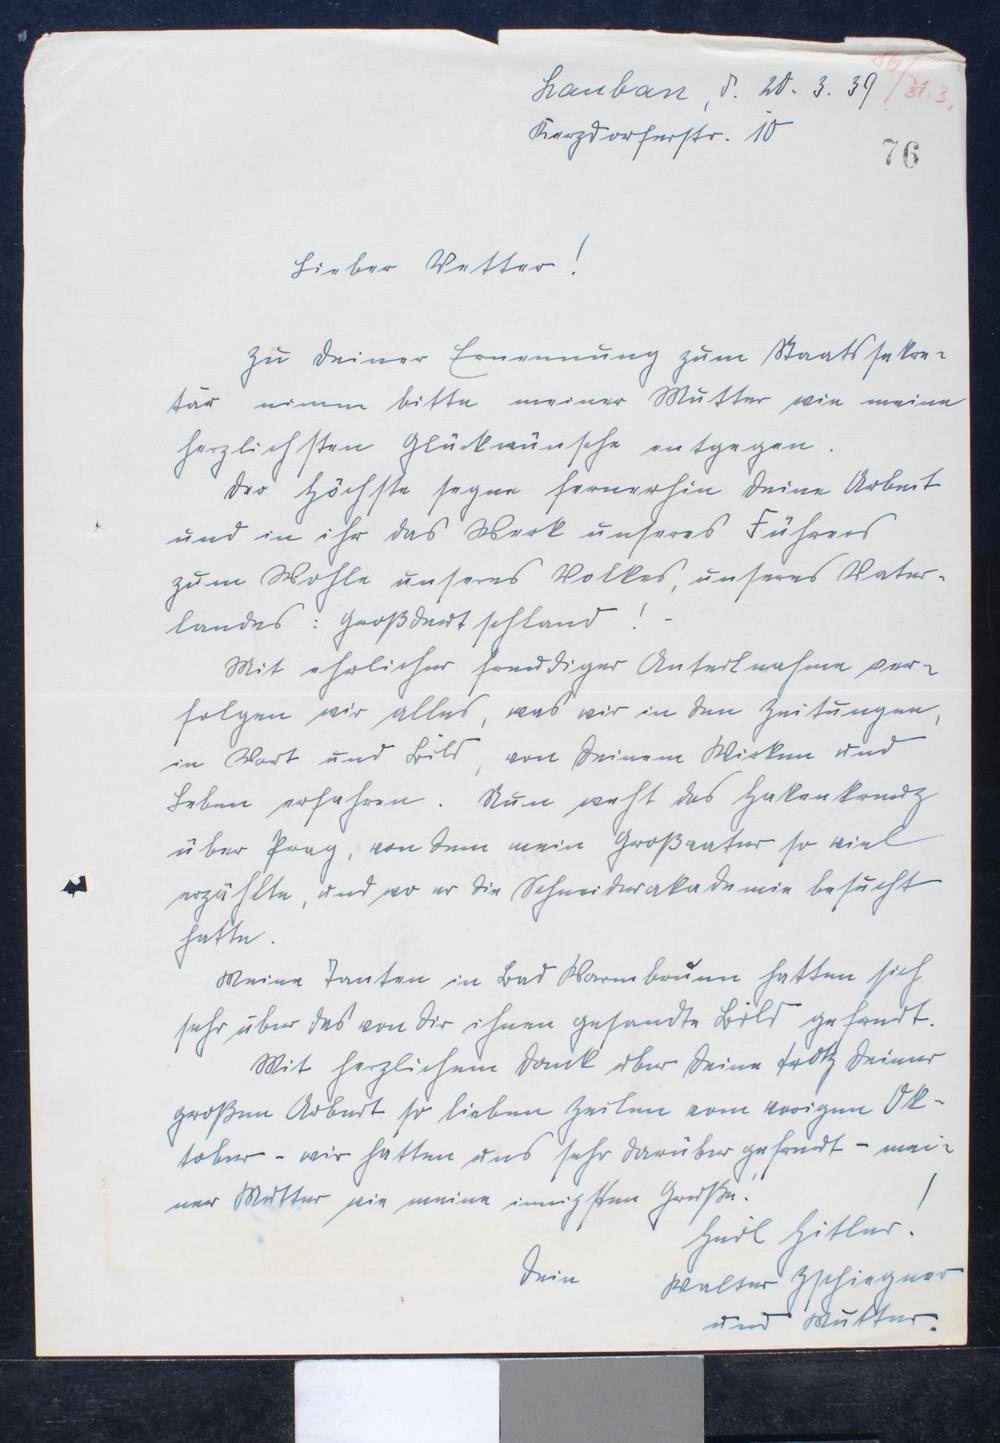 Lauban, d. 20. 3. 39
86/31.3.
Kerzdorferstr. 10
76
Lieber Vetter!
Zu Deiner Ernennung zum Staatssekre-
tär nimm bitte meiner Mutter wie meine
herzlichsten Glückwünsche entgegen.
Der Höchste segne fernerhin Deine Arbeit
und in ihr das Werk unseres Führers
zum Wohle unseres Volkes, unseres Vater-
landes: Großdeutschland! -
Mit ehrlicher freudiger Anteilnahme ver-
folgen wir alles, was wir in den Zeitungen,
in Wort und Bild, von Deinem Wirken und
Leben erfahren. Nun weht das Hakenkreuz
über Prag, von dem mein Großvater so viel
erzählte, und wo er die Schneiderakademie besucht
hatte.
Meine Tanten in Bad Warmbrunn hatten sich
sehr über das von Dir ihnen gesandte Bild gefreut.
Mit herzlichem Dank über Deine trotz Deiner
großen Arbeit so lieben Zeilen vom vorigen Ok-
tober - wir hatten uns sehr darüber gefreut - mei-
ner Mutter wie meine innigsten Grüße!
Heil Hitler!
Dein Walter Zschiegner
und Mutter.